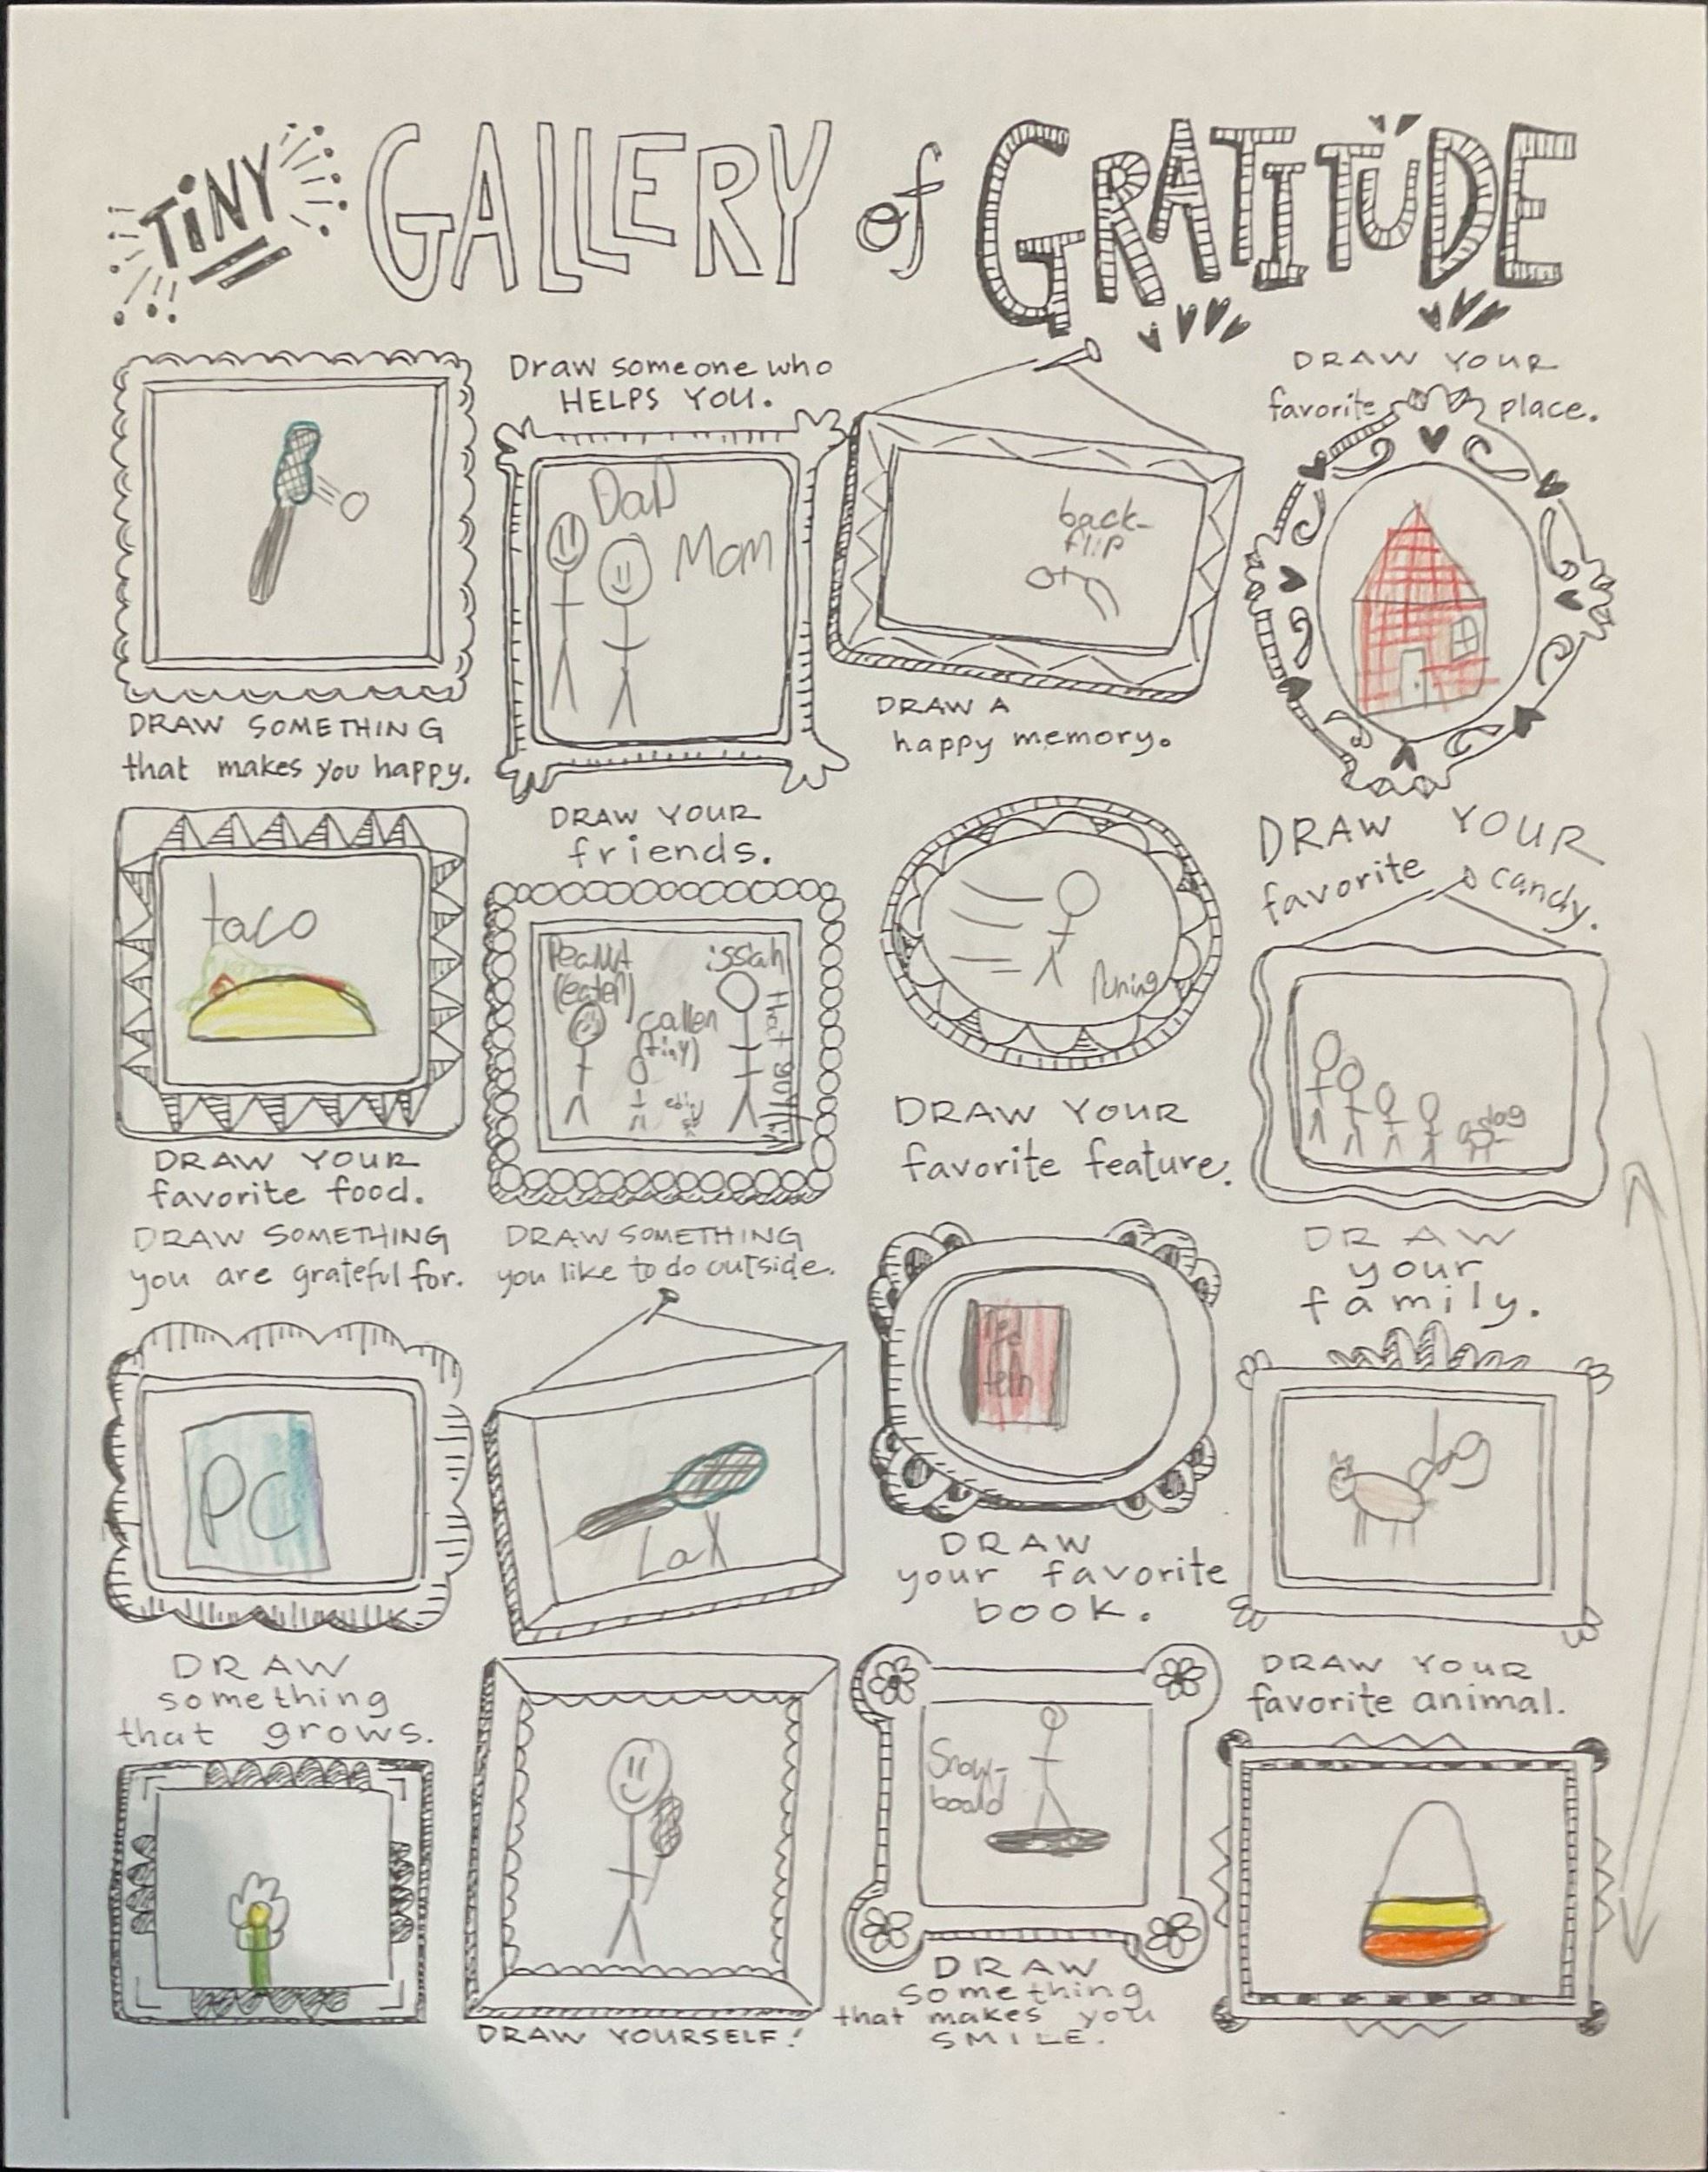 TiNY GALLERY of GRATITUDE
DRAW SOMETHING
that makes you happy.
Draw someone who
HELPS YOU.
Dad
Mom
back-
flip
DRAW A
happy memory.
DRAW YOUR
favorite place.
taco
DRAW YOUR
favorite food.
DRAW YOUR
friends.
Peanut
(eater)
callen
(tiny)
issah
that guy
Runing
DRAW YOUR
favorite feature.
DRAW YOUR
favorite candy.
dog
DRAW SOMETHING
you are grateful for.
PC
DRAW SOMETHING
you like to do outside.
LaX
red
DRAW
your favorite
book.
DRAW
your
family.
dog
DRAW
something
that grows.
DRAW YOURSELF!
Snow-
boald
DRAW
something
that makes you
SMILE.
DRAW YOUR
favorite animal.